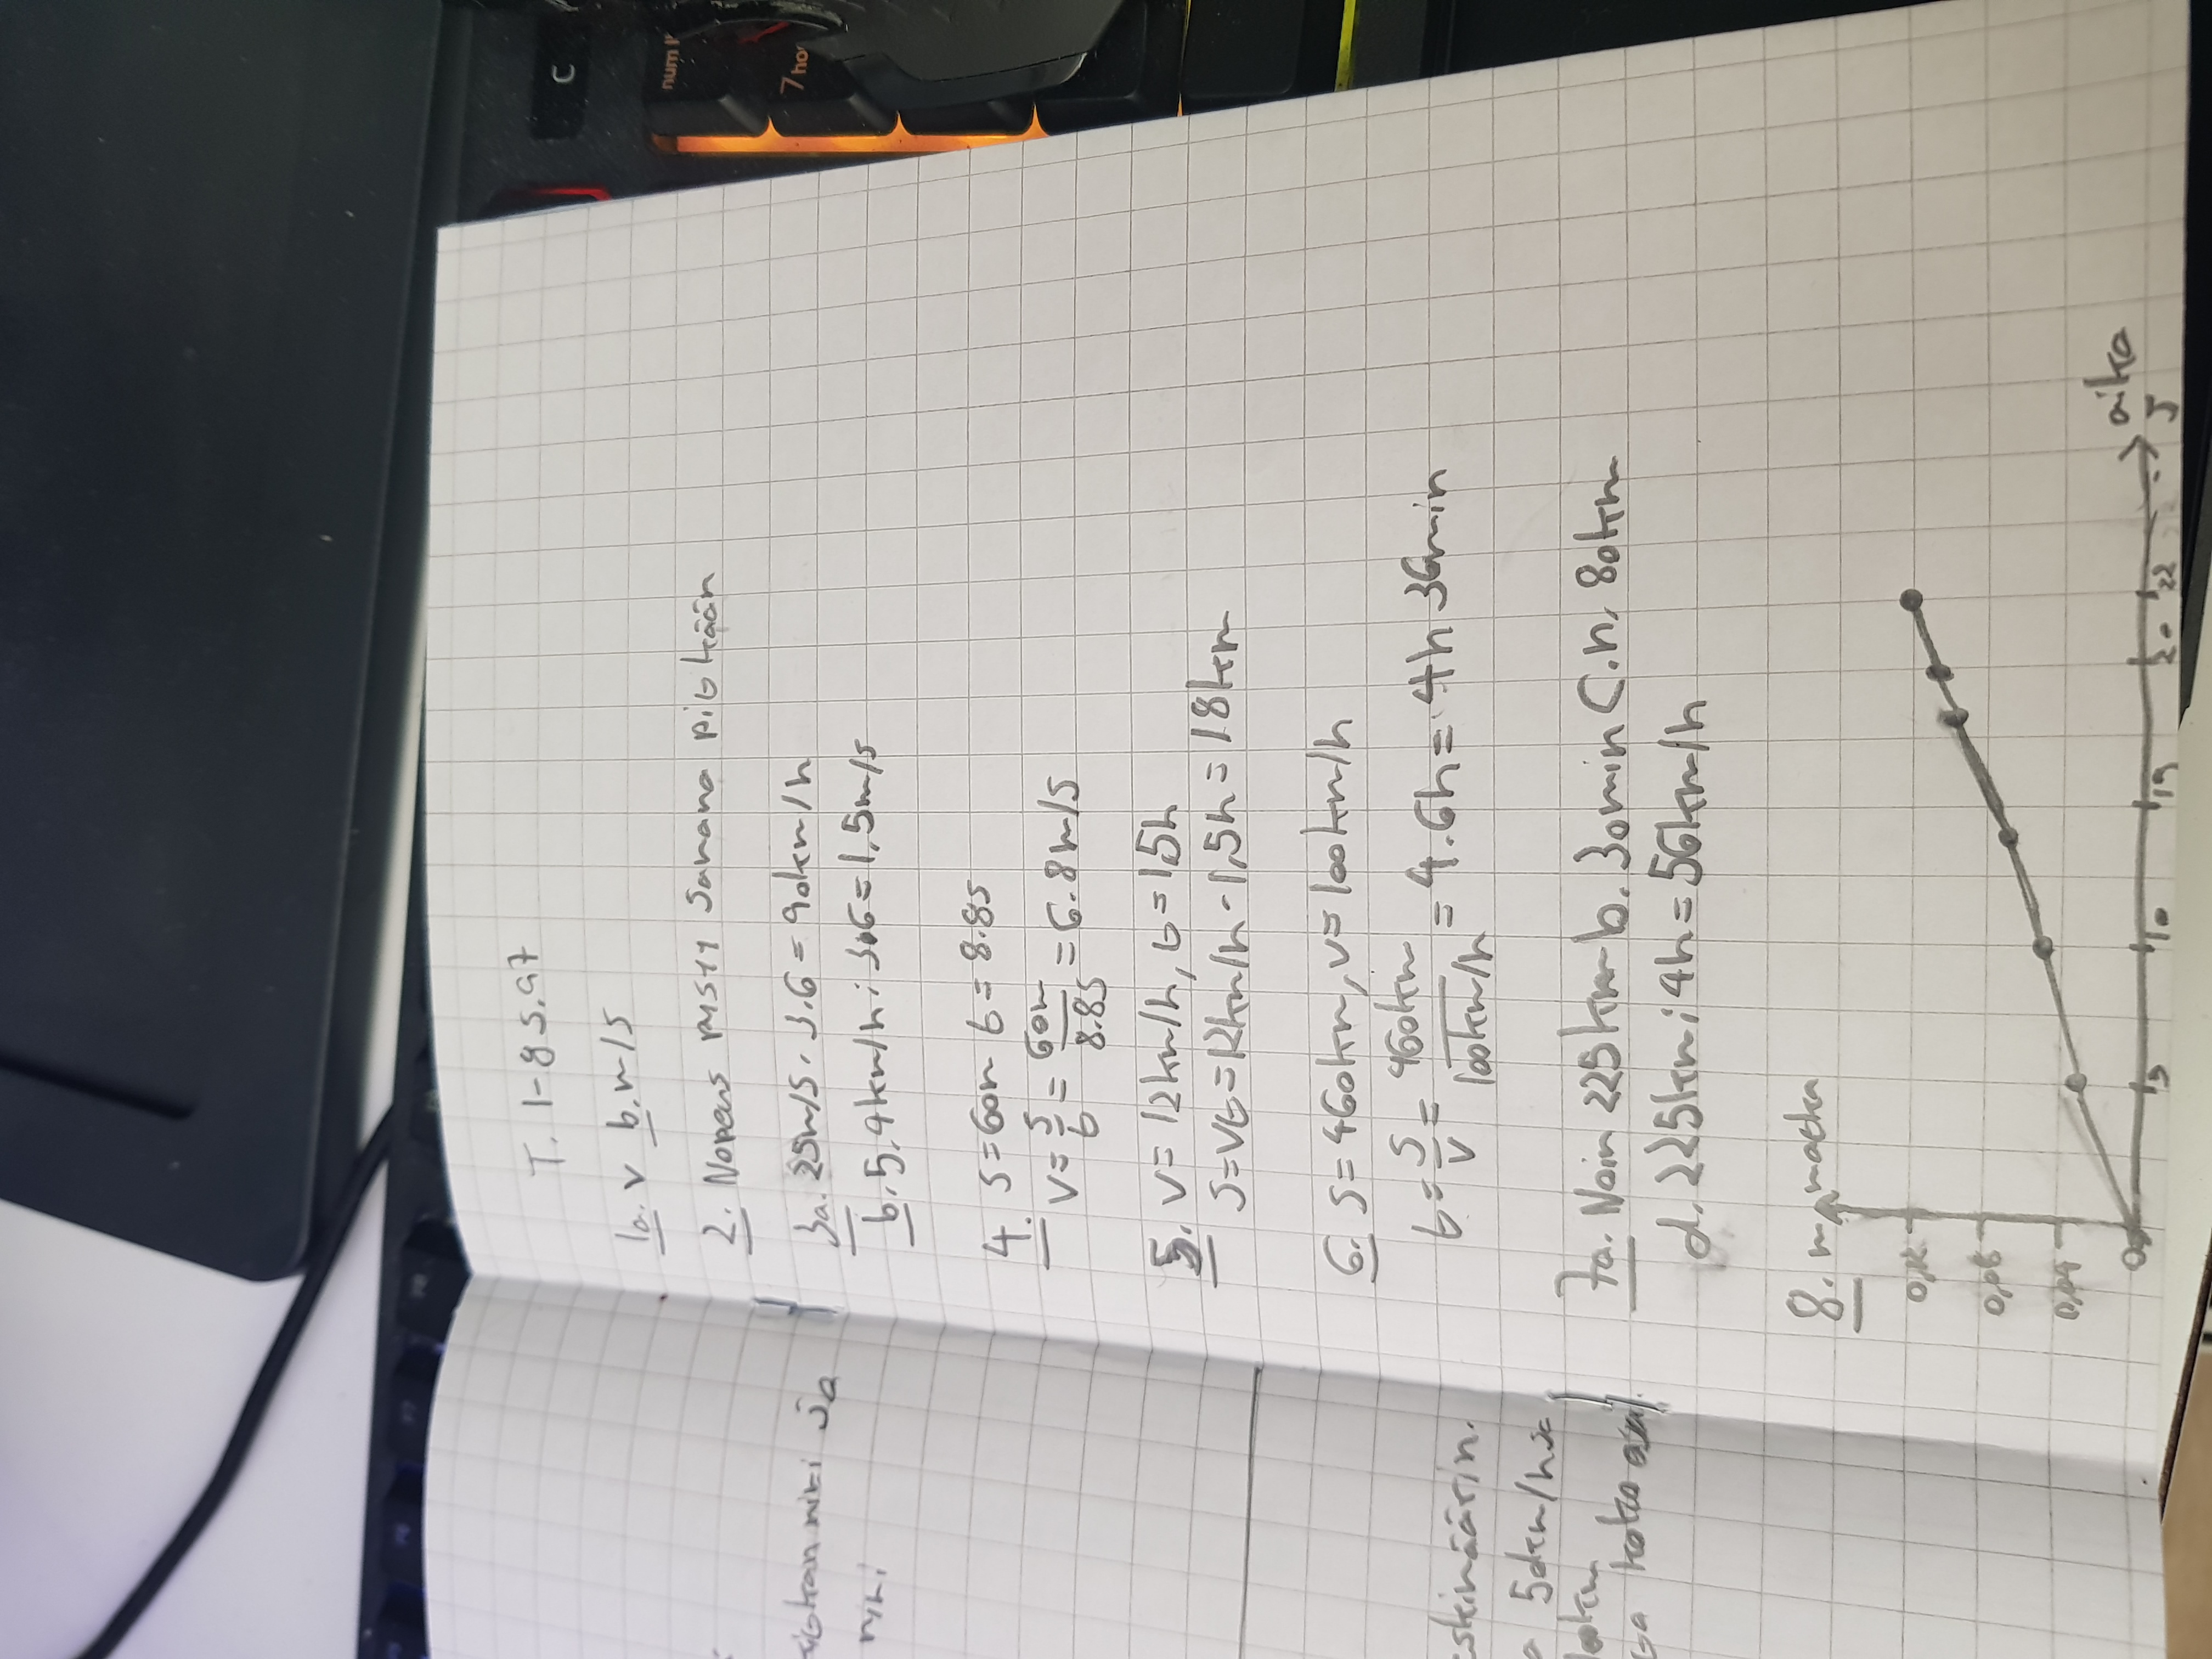 T. 1-8 s.97
1a. v b. m/s
2. Nopeus pysyy samana pitkään
3a. 25m/s · 3.6 = 90km/h
b. 5,4km/h : 3.6 = 1,5m/s
4. s = 60m t = 8.8s
v = s/t = 60m/8.8s = 6.8m/s
5. v = 12km/h, t = 1,5h
s = vt = 12km/h · 1,5h = 18km
6. s = 460km, v = 100km/h
t = s/v = 460km/100km/h = 4.6h = 4h 36min
7a. Noin 225km b. 30min C. n. 80km
d. 225km : 4h = 56km/h
8. m matka
0,12
0,08
0,04
0
5 10 19 20 22 s
aika
ja
5dkm/h
koko
C
num l
7 ho